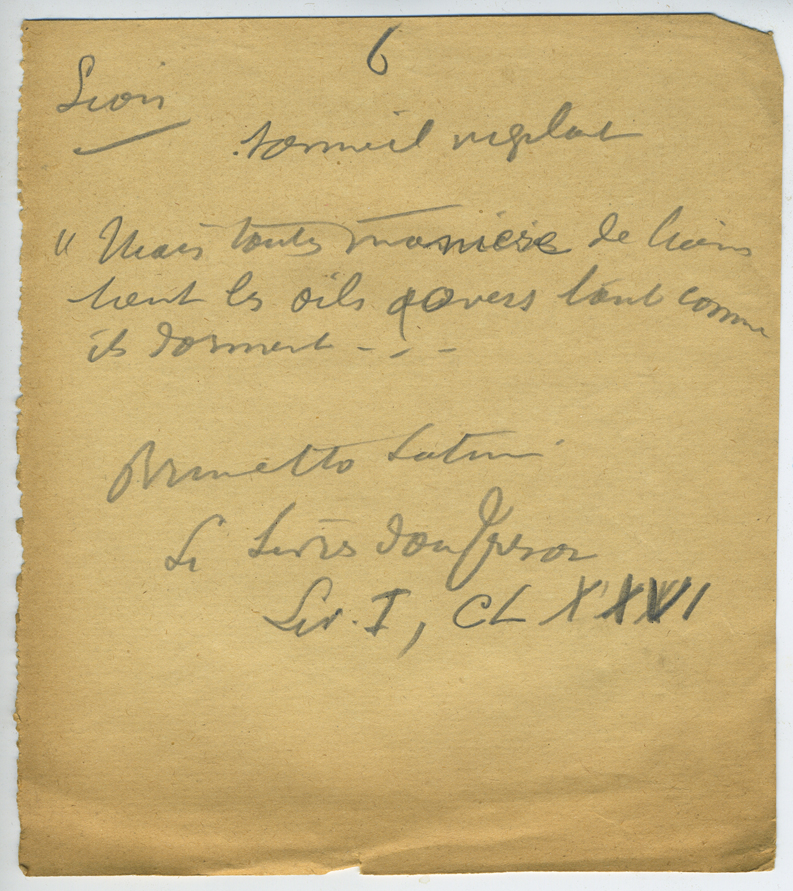 6
Lion
sommeil vigilant
" Mais toute maniere de lions
tient les oils overs tant comme
ils dorment - - -
Brunetto Latini
Li Livres dou Tresor
Liv. I, CLXXVI